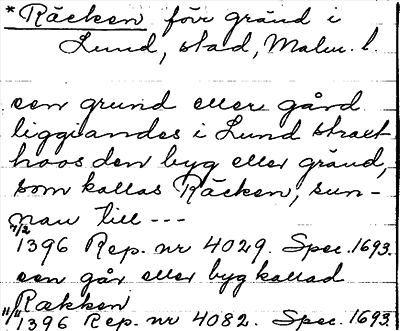 *Räcken förr gränd i
Lund, stad, Malm. l.
een grund eller gård
liggiandes i Lund straxt
hoos den byg eller gränd,
som kallas Räcken, sun-
nan till ---
7/2
1396 Rep. nr 4029. Spec. 1693.
een går eller byg kallad
Räkken
11/11
1396 Rep. nr 4082. Spec. 1693.